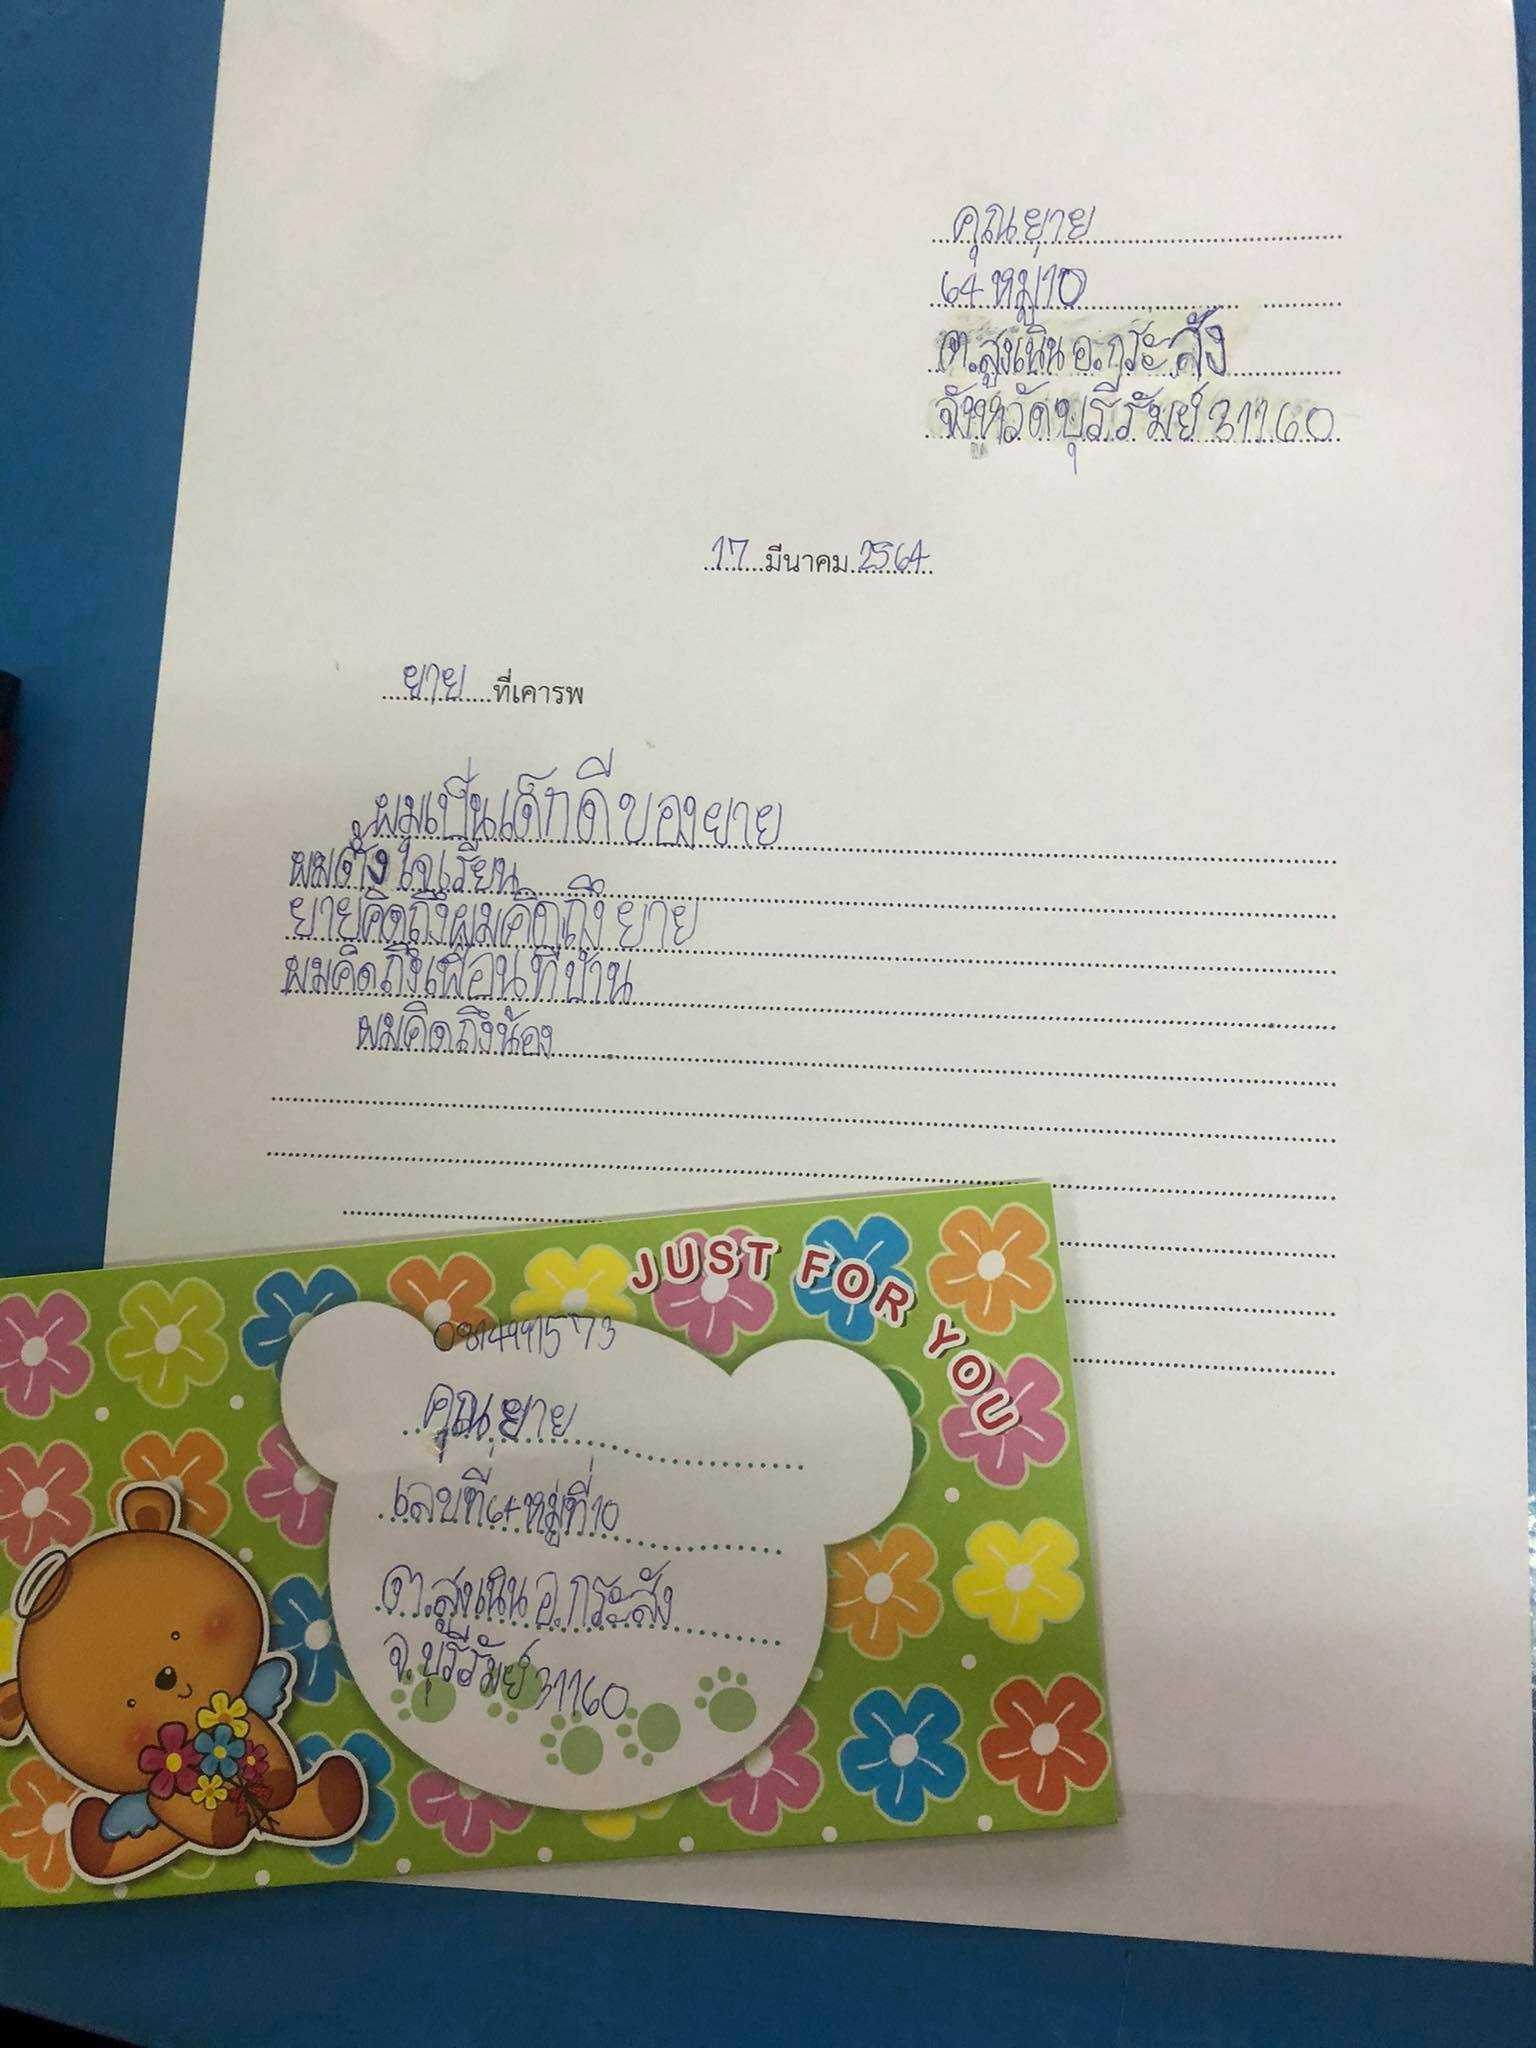 คุณยาย
64 หมู่10
ต.สูงเนิน อ.กระสัง
จังหวัดบุรีรัมย์ 31160
17 มีนาคม 2564
ยาย ที่เคารพ
ผมเป็นเด็กดีของยาย
ผมตั้งใจเรียน
ยายคิดถึงผมคิดถึงยาย
ผมคิดถึงเพื่อนที่บ้าน
ผมคิดถึงน้อง
JUST FOR YOU
0814991573
คุณยาย
เลขที่64หมู่ที่10
ต.สูงเนิน อ.กระสัง
จ.บุรีรัมย์ 31160